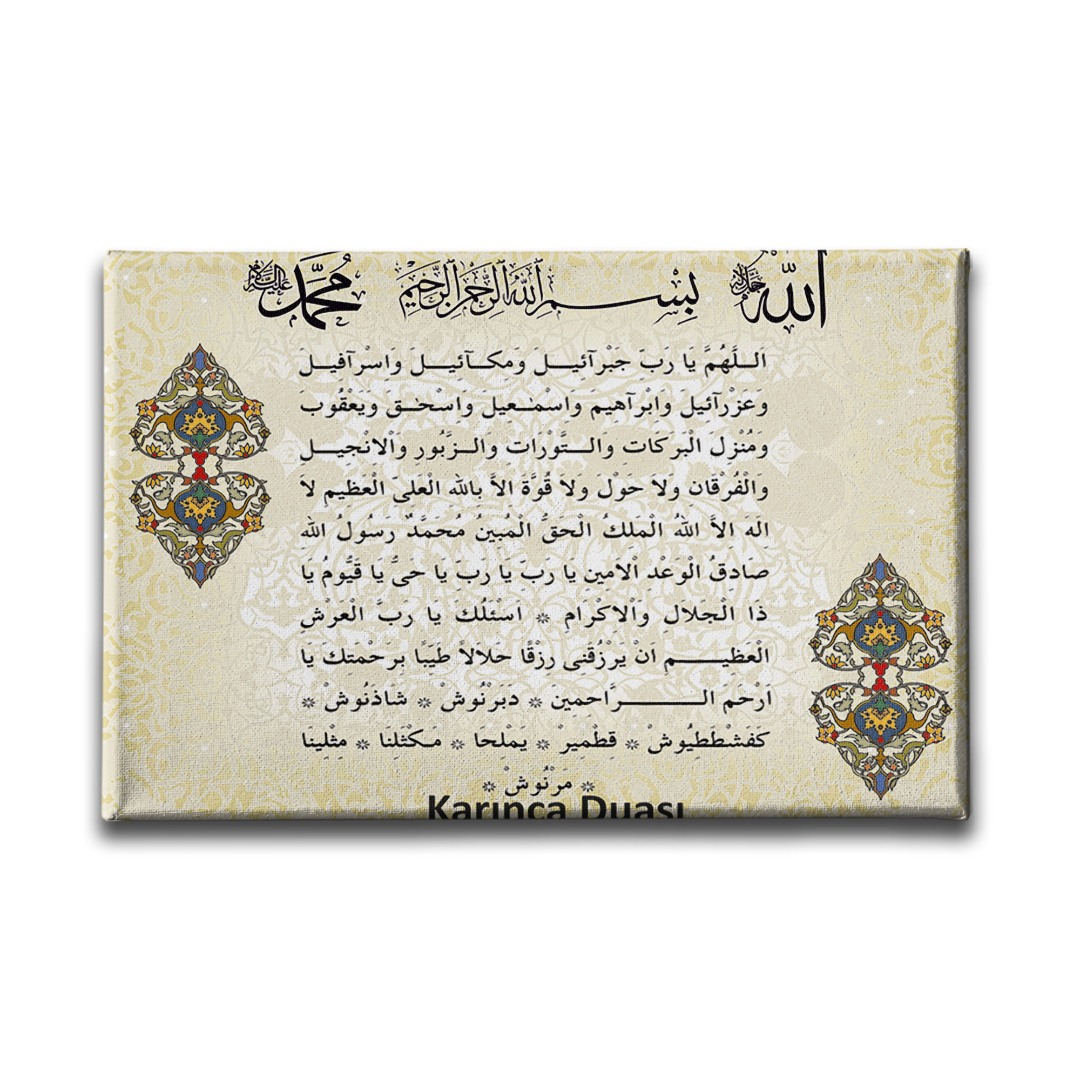 الله جل جلاله بسم الله الرحمن الرحيم محمد عليه السلام
اَللَّهُمَّ يَا رَبَّ جَبْرَآئِيلَ وَمِكَآئِيلَ وَاِسْرَآفِيلَ
وَعَزْرَآئِيلَ وَاِبْرَاهِيمَ وَاِسْمَعِيلَ وَاِسْحَقَ وَيَعْقُوبَ
وَمُنْزِلَ الْبَرَكَاتِ وَالتَّوْرَاتِ وَالزَّبُورِ وَالْاِنْجِيلِ
وَالْفُرْقَانِ وَلاَ حَوْلَ وَلاَ قُوَّةَ اِلاَّ بِاللهِ الْعَلِىِّ الْعَظِيمِ لاَ
اِلَهَ اِلاَّ اللهُ الْمَلِكُ الْحَقُّ الْمُبِينُ مُحَمَّدٌ رَسُولُ اللهِ
صَادِقُ الْوَعْدِ الْاَمِينِ يَا رَبِّ يَا رَبِّ يَا حَىُّ يَا قَيُّومُ يَا
ذَا الْجَلاَلِ وَالْاِكْرَامِ * اَسْئَلُكَ يَا رَبَّ الْعَرْشِ
الْعَظِيمِ اَنْ يَرْزُقَنِى رِزْقًا حَلاَلاً طَيِّبًا بِرَحْمَتِكَ يَا
اَرْحَمَ الرَّاحِمِينَ * دَبَرْنُوشْ * شَاذَنُوشْ *
كَفَشْطَطَيُوشْ * قِطْمِيرْ * يَمْلِحَا * مَكْثَلِنَا * مَثْلِينَا
* مَرْنُوشْ *
Karınca Duası